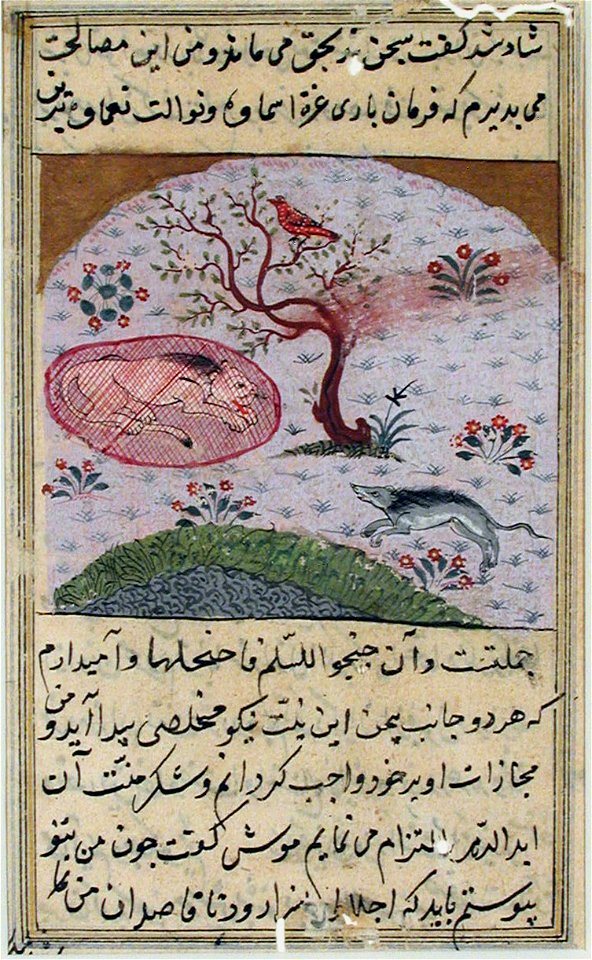 شاد شد گفت سخن تو بحق می ماند و من این مصالحت
می پذیرم که فرمان باری عزة اسماوه ونوالت نعماوه بدین
جملتست وآن جنحوا للسّلم فاجنحلها وآمیدارم
که هر دو جانب بیمن این نیّت نیکو مخلصی پیدا آید و من
مجازات او بر خود واجب گردانم و شکر منّت آن
ابد الدّهر التزام می نمایم موش گفت چون من بتو
پیوستم باید که رود تا قاصدان من